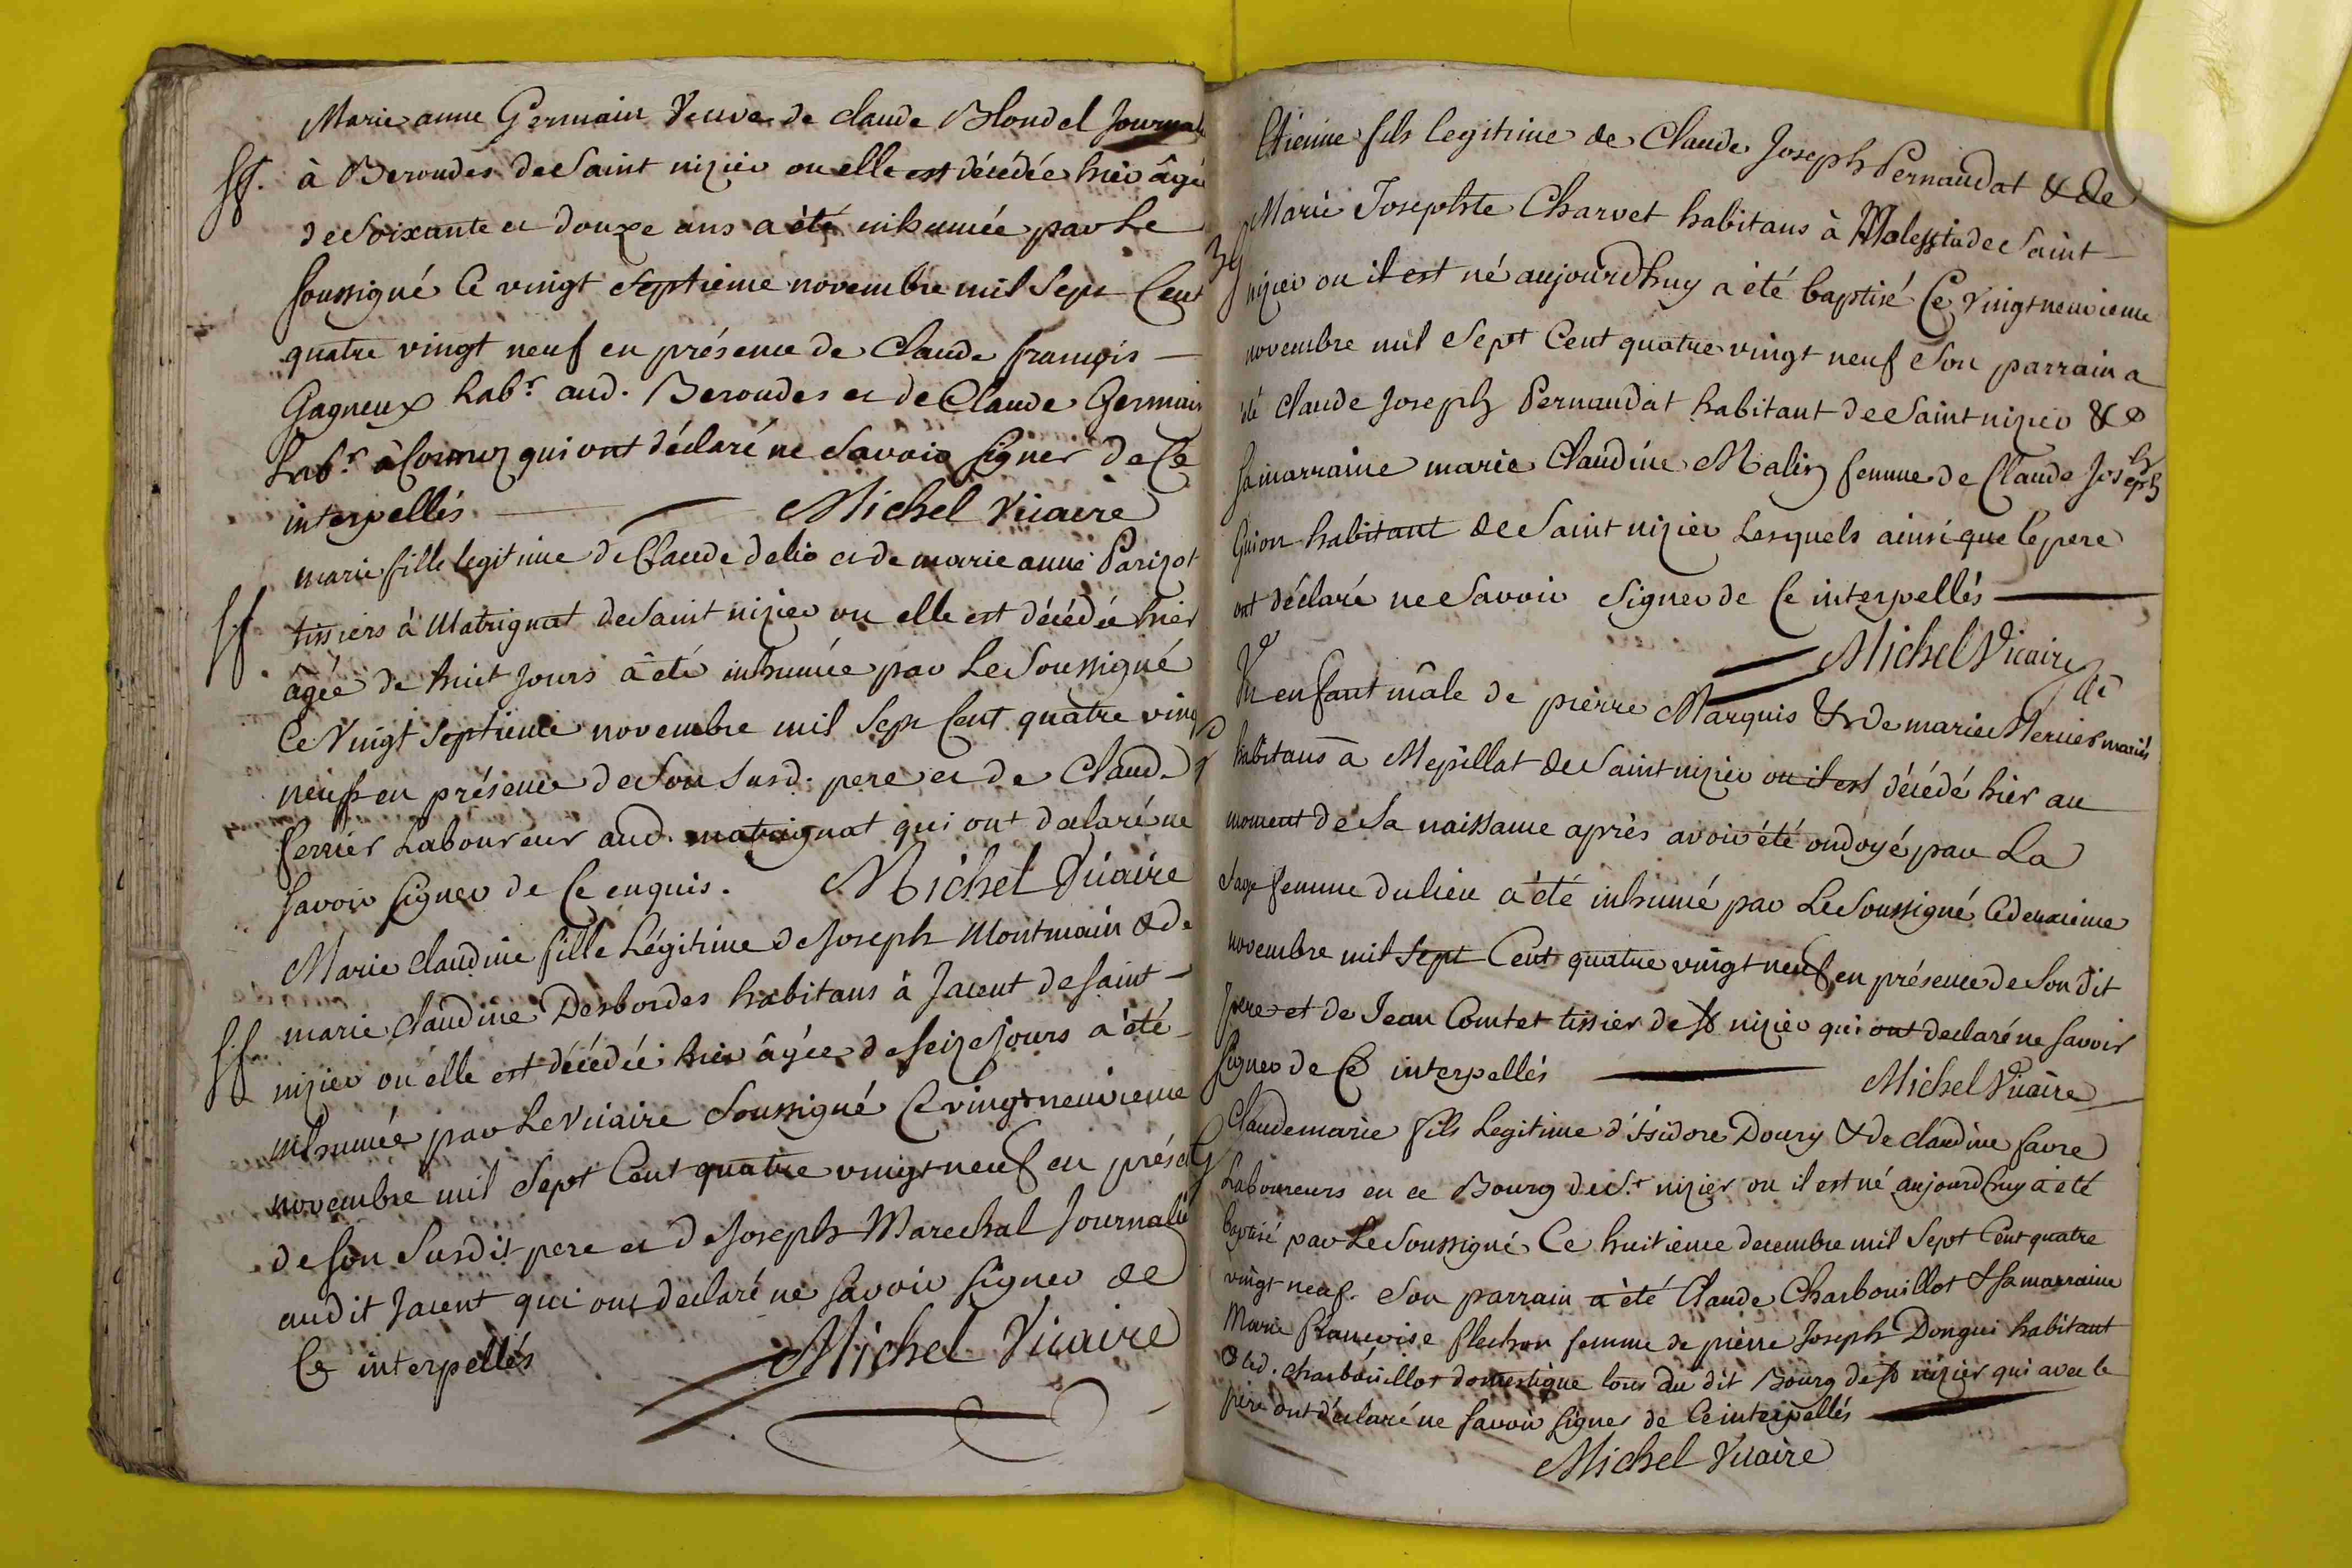 Marie anne Germain Veuve de claude Blondel Journal
Sf. à Beroudes de Saint nizier ou elle est décédée hier âgé
de Soixante et douze ans a été inhumée par Le
Soussigné Ce vingt Septieme novembre mil Sept Cent
quatre vingt neuf en présence de Claude françois
Gagneux habt. aud. Beroudes et de Claude Germain
Labr. à qui ont déclaré ne Savoir Signer de Ce
interpellés Michel Vicaire
marie fille legitime de Claude delio et de marie anne Parizot
Sf tissiers à Matrignat de Saint nizier ou elle est décédée hier
âgée de huit Jours a été inhumée par Le Soussigné
Ce Vingt Septieme novembre mil Sept Cent quatre ving
neuf en présence de Son Susd. pere et de Claud
ferrier Laboureur aud. matrignat qui ont declaré ne
Savoir Signer de Ce enquis. Michel Vicaire
Marie Claudine fille Légitime de Joseph Montmain & de
marie Claudine Desbordes habitans à Jacent de Saint
Sf nizier ou elle est décédée hier âgée de Seize Jours a été
inhumée par Le Vicaire Soussigné Ce vingt neuvieme
novembre mil Sept Cent quatre vingt neuf en présc
de Son Susdit pere et de Joseph Marechal Journalie
audit Jacent qui ont declaré ne Savoir Signer de
Ce interpellés Michel Vicaire
Etienne fils legitime de Claude Joseph Pernaudat & de
Marie Josephte Charvet habitans à de Saint
nizier ou il est né aujourdhuy a été baptisé Ce Vingt neuvieme
novembre mil Sept Cent quatre vingt neuf Son parrain a
été Claude Joseph Pernaudat habitant de Saint nizier &
Sa marraine marie Claudine Malin femme de Claude Joseph
Guion habitant de Saint nizier Lesquels ainsi que le pere
ont déclaré ne Savoir Signer de Ce interpellés
Michel Vicaire
Un enfant mâle de pierre Marquis & de marie Mercier mariés
habitans à Mepillat de Saint nizier ou il est décédé hier au
moment de Sa naissance après avoir été ondoyé par La
Sage femme du lieu a été inhumé par Le Soussigné Ce deuxieme
novembre mil Sept Cent quatre vingt neuf en présence de Son dit
pere et de Jean Comtet tissier de St nizier qui ont declaré ne Savoir
Signer de Ce interpellés Michel Vicaire
Claude marie fils Legitime d'isidore Doury & de claudine favre
Laboureurs en ce Bourg de St nizier ou il est né aujourdhuy a été
baptisé par Le Soussigné Ce huitieme decembre mil Sept Cent quatre
vingt neuf. Son parrain a été Claude Charbouillot & Sa marraine
Marie Francoise flechon femme de pierre Joseph Dongui habitant
& led. charbouillot domestique tous du dit Bourg de St nizier qui avec le
père ont déclaré ne Savoir Signer de Ce interpellés
Michel Vicaire